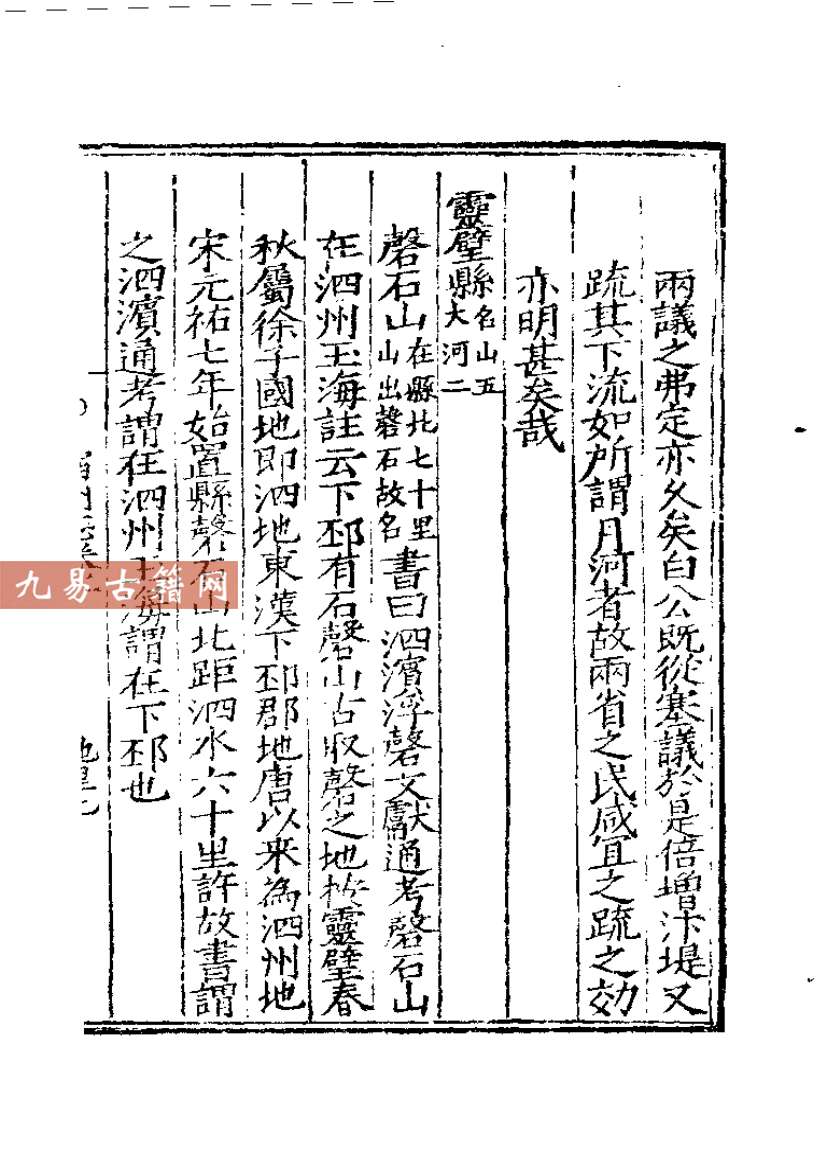 兩議之弗定亦久矣白公既從塞議於是倍增汴堤又
疏其下流如所謂月河者故兩省之民咸宜之疏之効
亦明甚矣哉
靈璧縣名山五大河二
磬石山在縣北七十里山出磬石故名書曰泗濱浮磬文獻通考磬石山
在泗州玉海註云下邳有石磬山古取磬之地按靈璧春
秋屬徐子國地即泗地東漢下邳郡地唐以来為泗州地
宋元祐七年始置縣磬石山北距泗水六十里許故書謂
之泗濱通考謂在泗州玉海謂在下邳也
九易古籍网